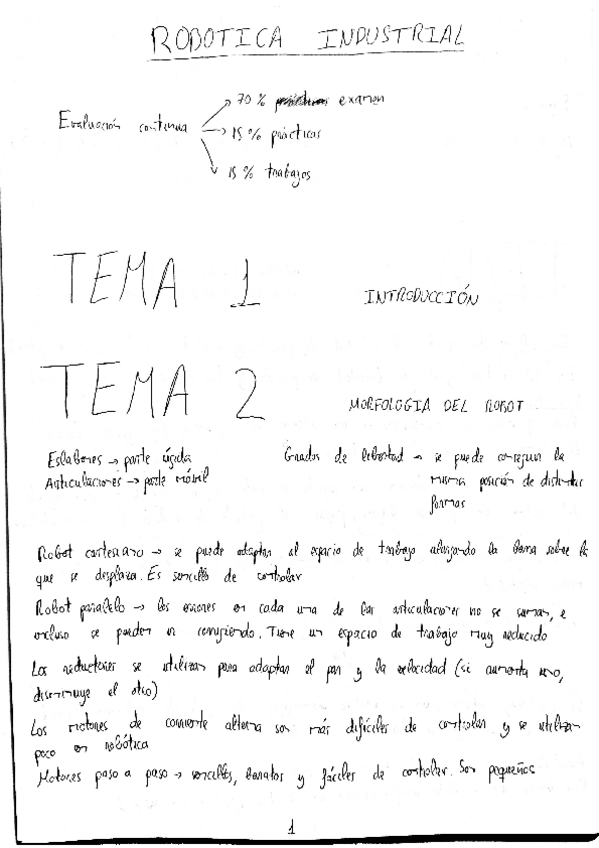 ROBOTICA INDUSTRIAL
Evaluación continua
→ 70 % examen
→ 15 % prácticas
→ 15 % trabajos
TEMA 1 INTRODUCCIÓN
TEMA 2 MORFOLOGIA DEL ROBOT
Eslabones → parte rígida
Articulaciones → parte móvil
Grados de libertad → se puede conseguir la
misma posición de distintas
formas
Robot cartesiano → se puede adaptar al espacio de trabajo alargando la barra sobre la
que se desplaza. Es sencillo de controlar
Robot paralelo → los errores en cada una de las articulaciones no se suman, e
incluso se pueden ir corrigiendo. Tiene un espacio de trabajo muy reducido
Los reductores se utilizan para adaptar el par y la velocidad (si aumenta uno,
disminuye el otro)
Los motores de corriente alterna son más difíciles de controlar y se utilizan
poco en robótica
Motores paso a paso → sencillos, baratos y fáciles de controlar. Son pequeños
1